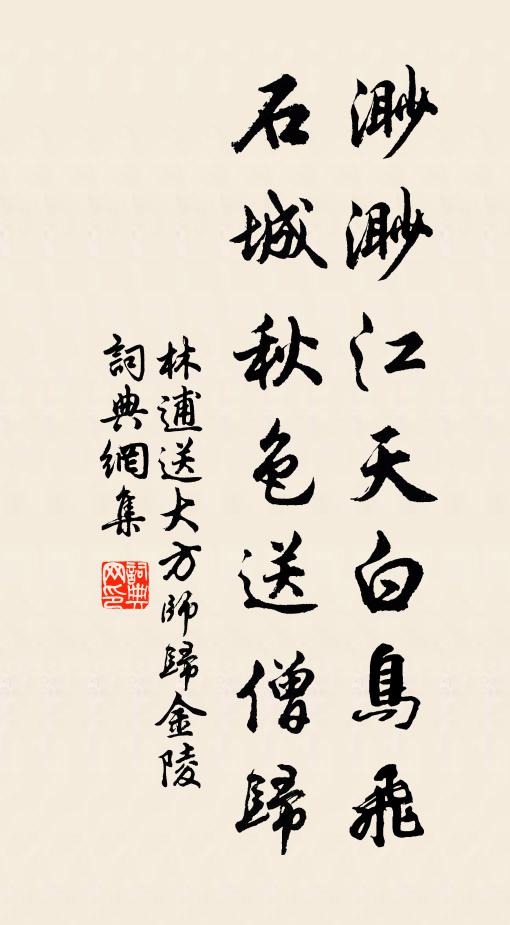 渺渺江天白鳥飛
石城秋色送僧歸
林逋送大方師歸金陵
詞典網集
詞典
网印